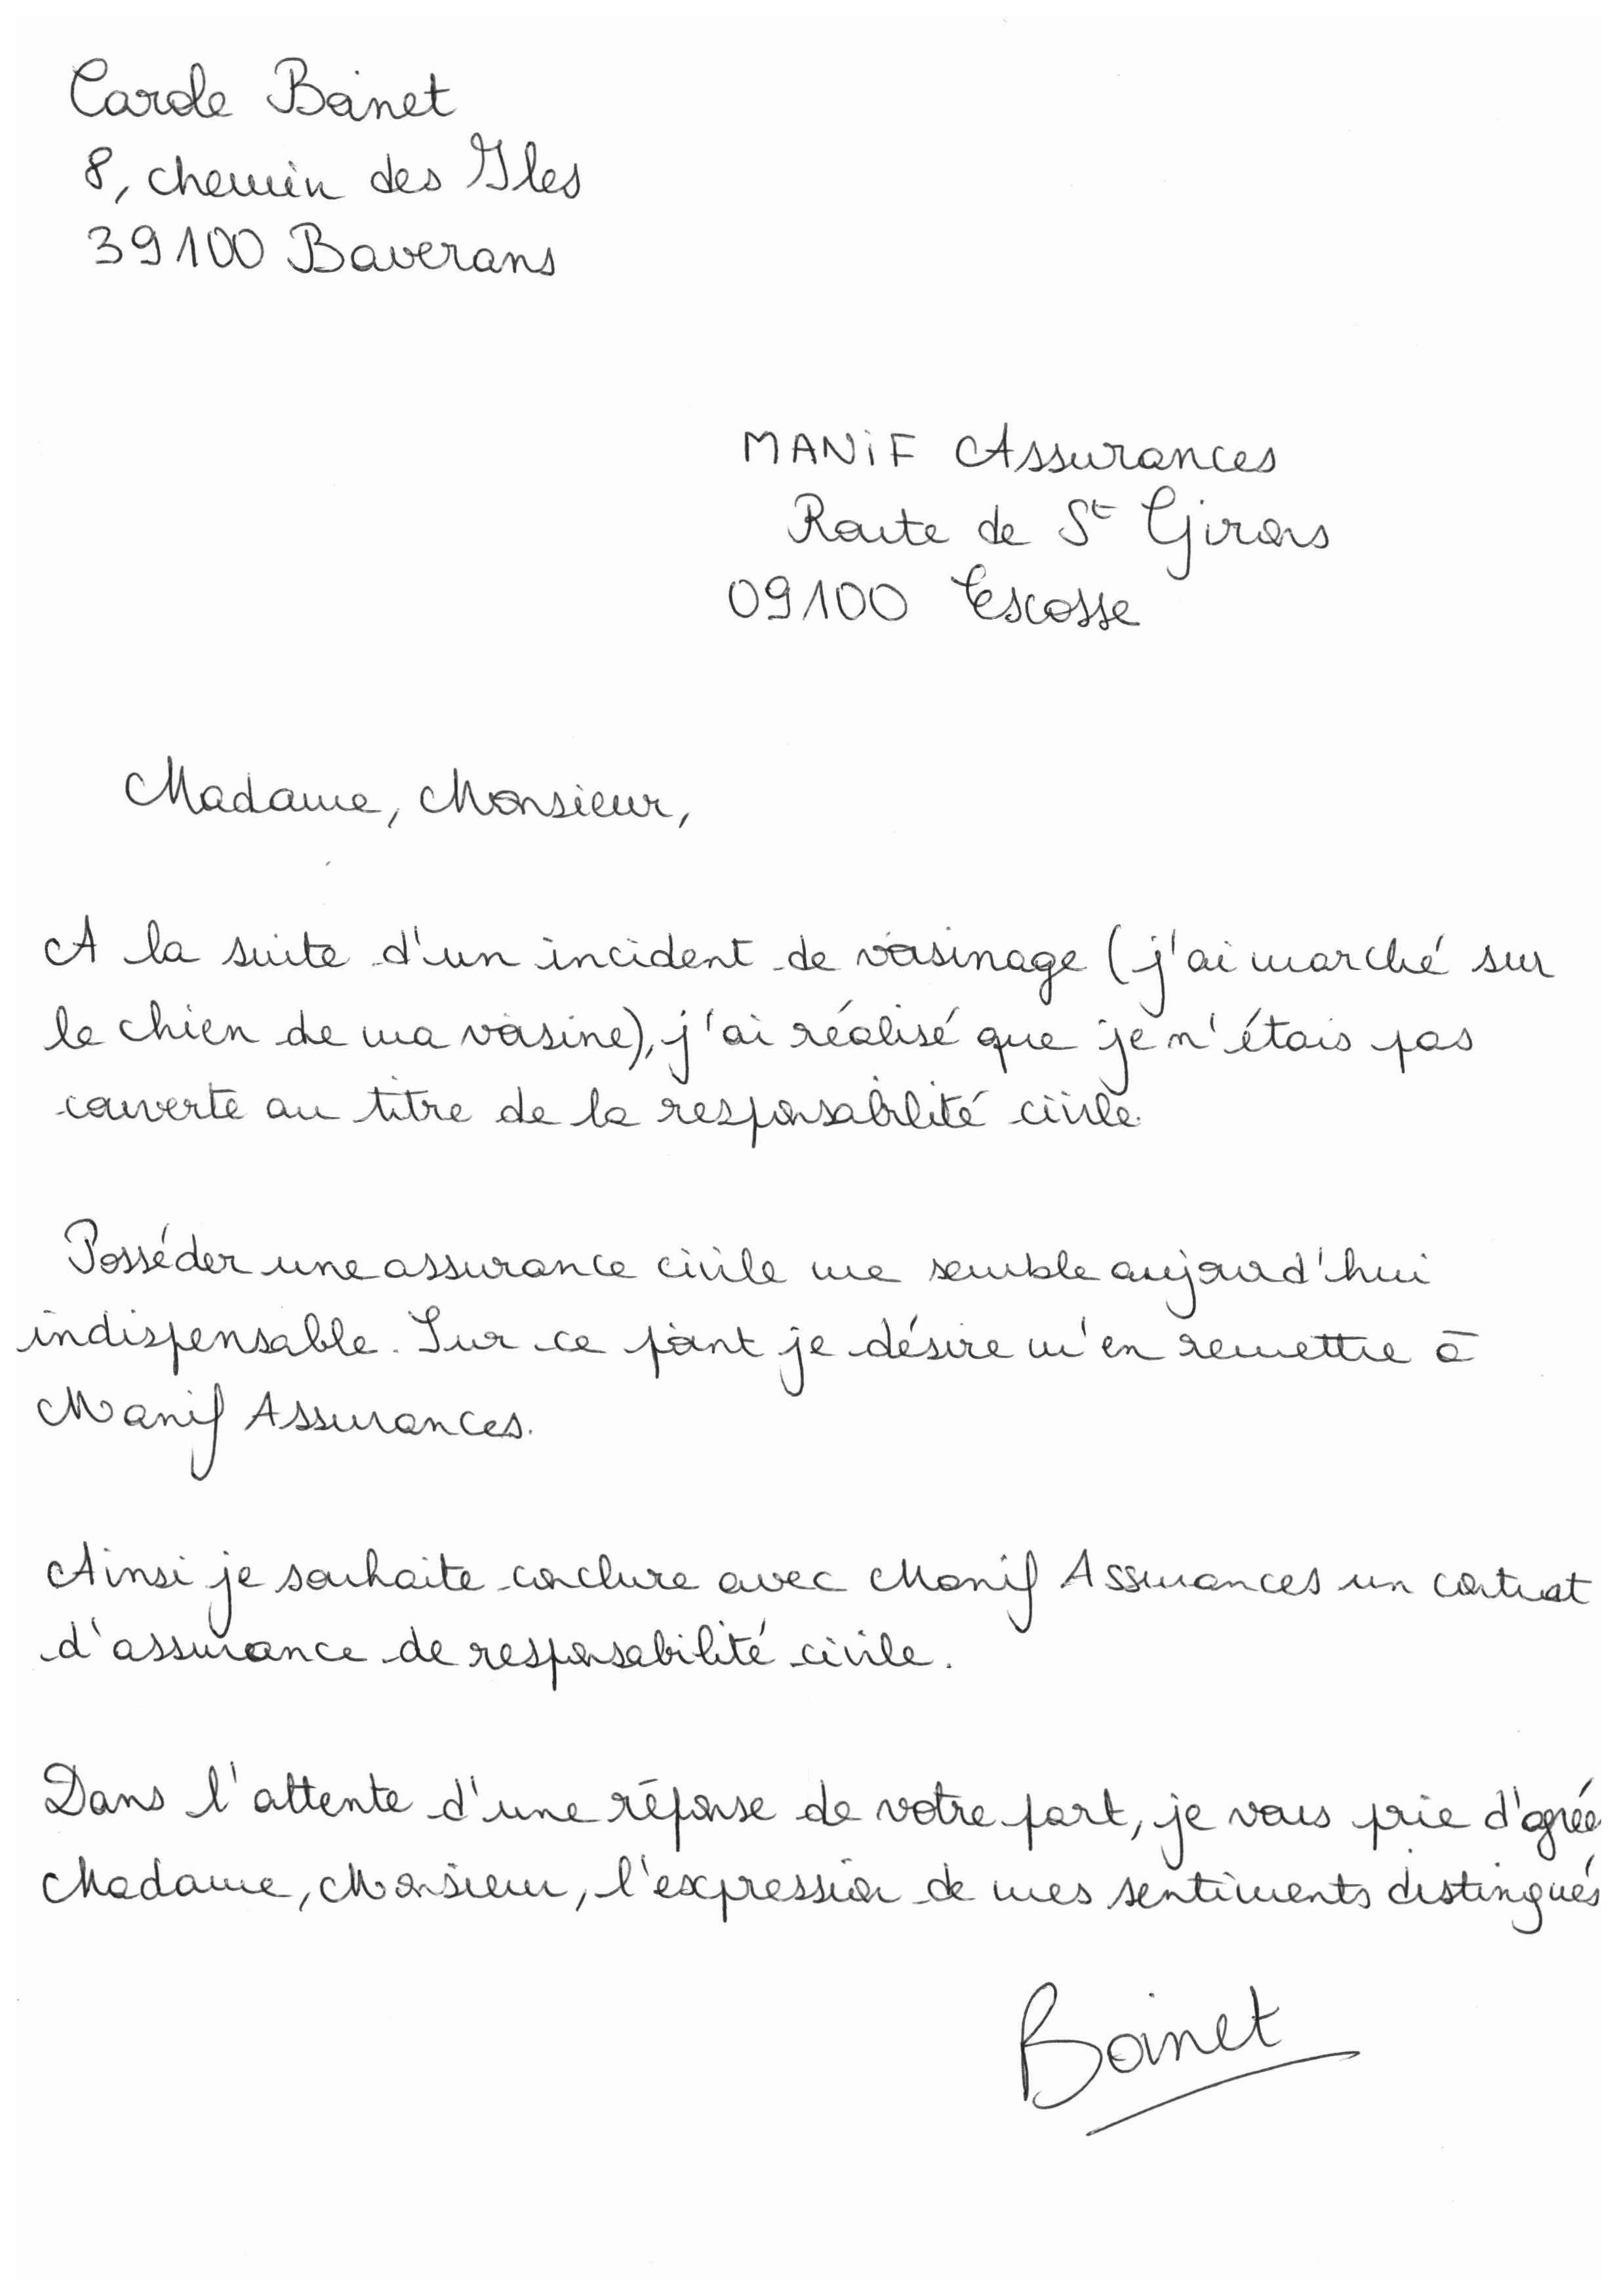 Carole Boinet
8, chemin des Iles
39100 Baverans
MANiF Assurances
Route de St Girons
09100 Escosse
Madame, Monsieur,
A la suite d'un incident de voisinage (j'ai marché sur
le chien de ma voisine), j'ai réalisé que je n'étais pas
couverte au titre de la responsabilité civile.
Posséder une assurance civile me semble aujourd'hui
indispensable. Sur ce point je désire m'en remettre à
Manif Assurances.
Ainsi je souhaite conclure avec Manif Assurances un contrat
d'assurance de responsabilité civile.
Dans l'attente d'une réponse de votre part, je vous prie d'agréé
Madame, Monsieur, l'expression de mes sentiments distingués
Boinet